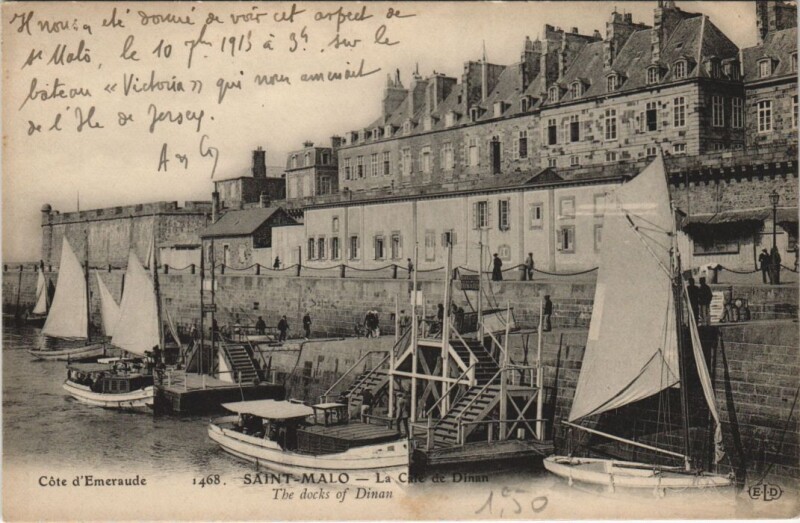 Il nous a été donné de voir cet aspect de
St Malô, le 10 7bre 1913 à 3h. sur le
bateau "Victoria" qui nous amenait
de l'Ile de Jersey.
Côte d'Emeraude 1468. SAINT-MALO — La Cale de Dinan
The docks of Dinan
1f,50
ELD